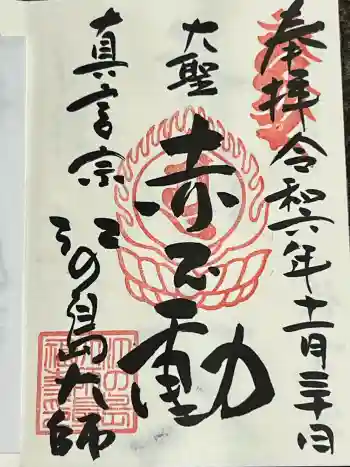 奉拝
令和六年十一月三十日
大聖
赤不動
真言宗
江の島大師